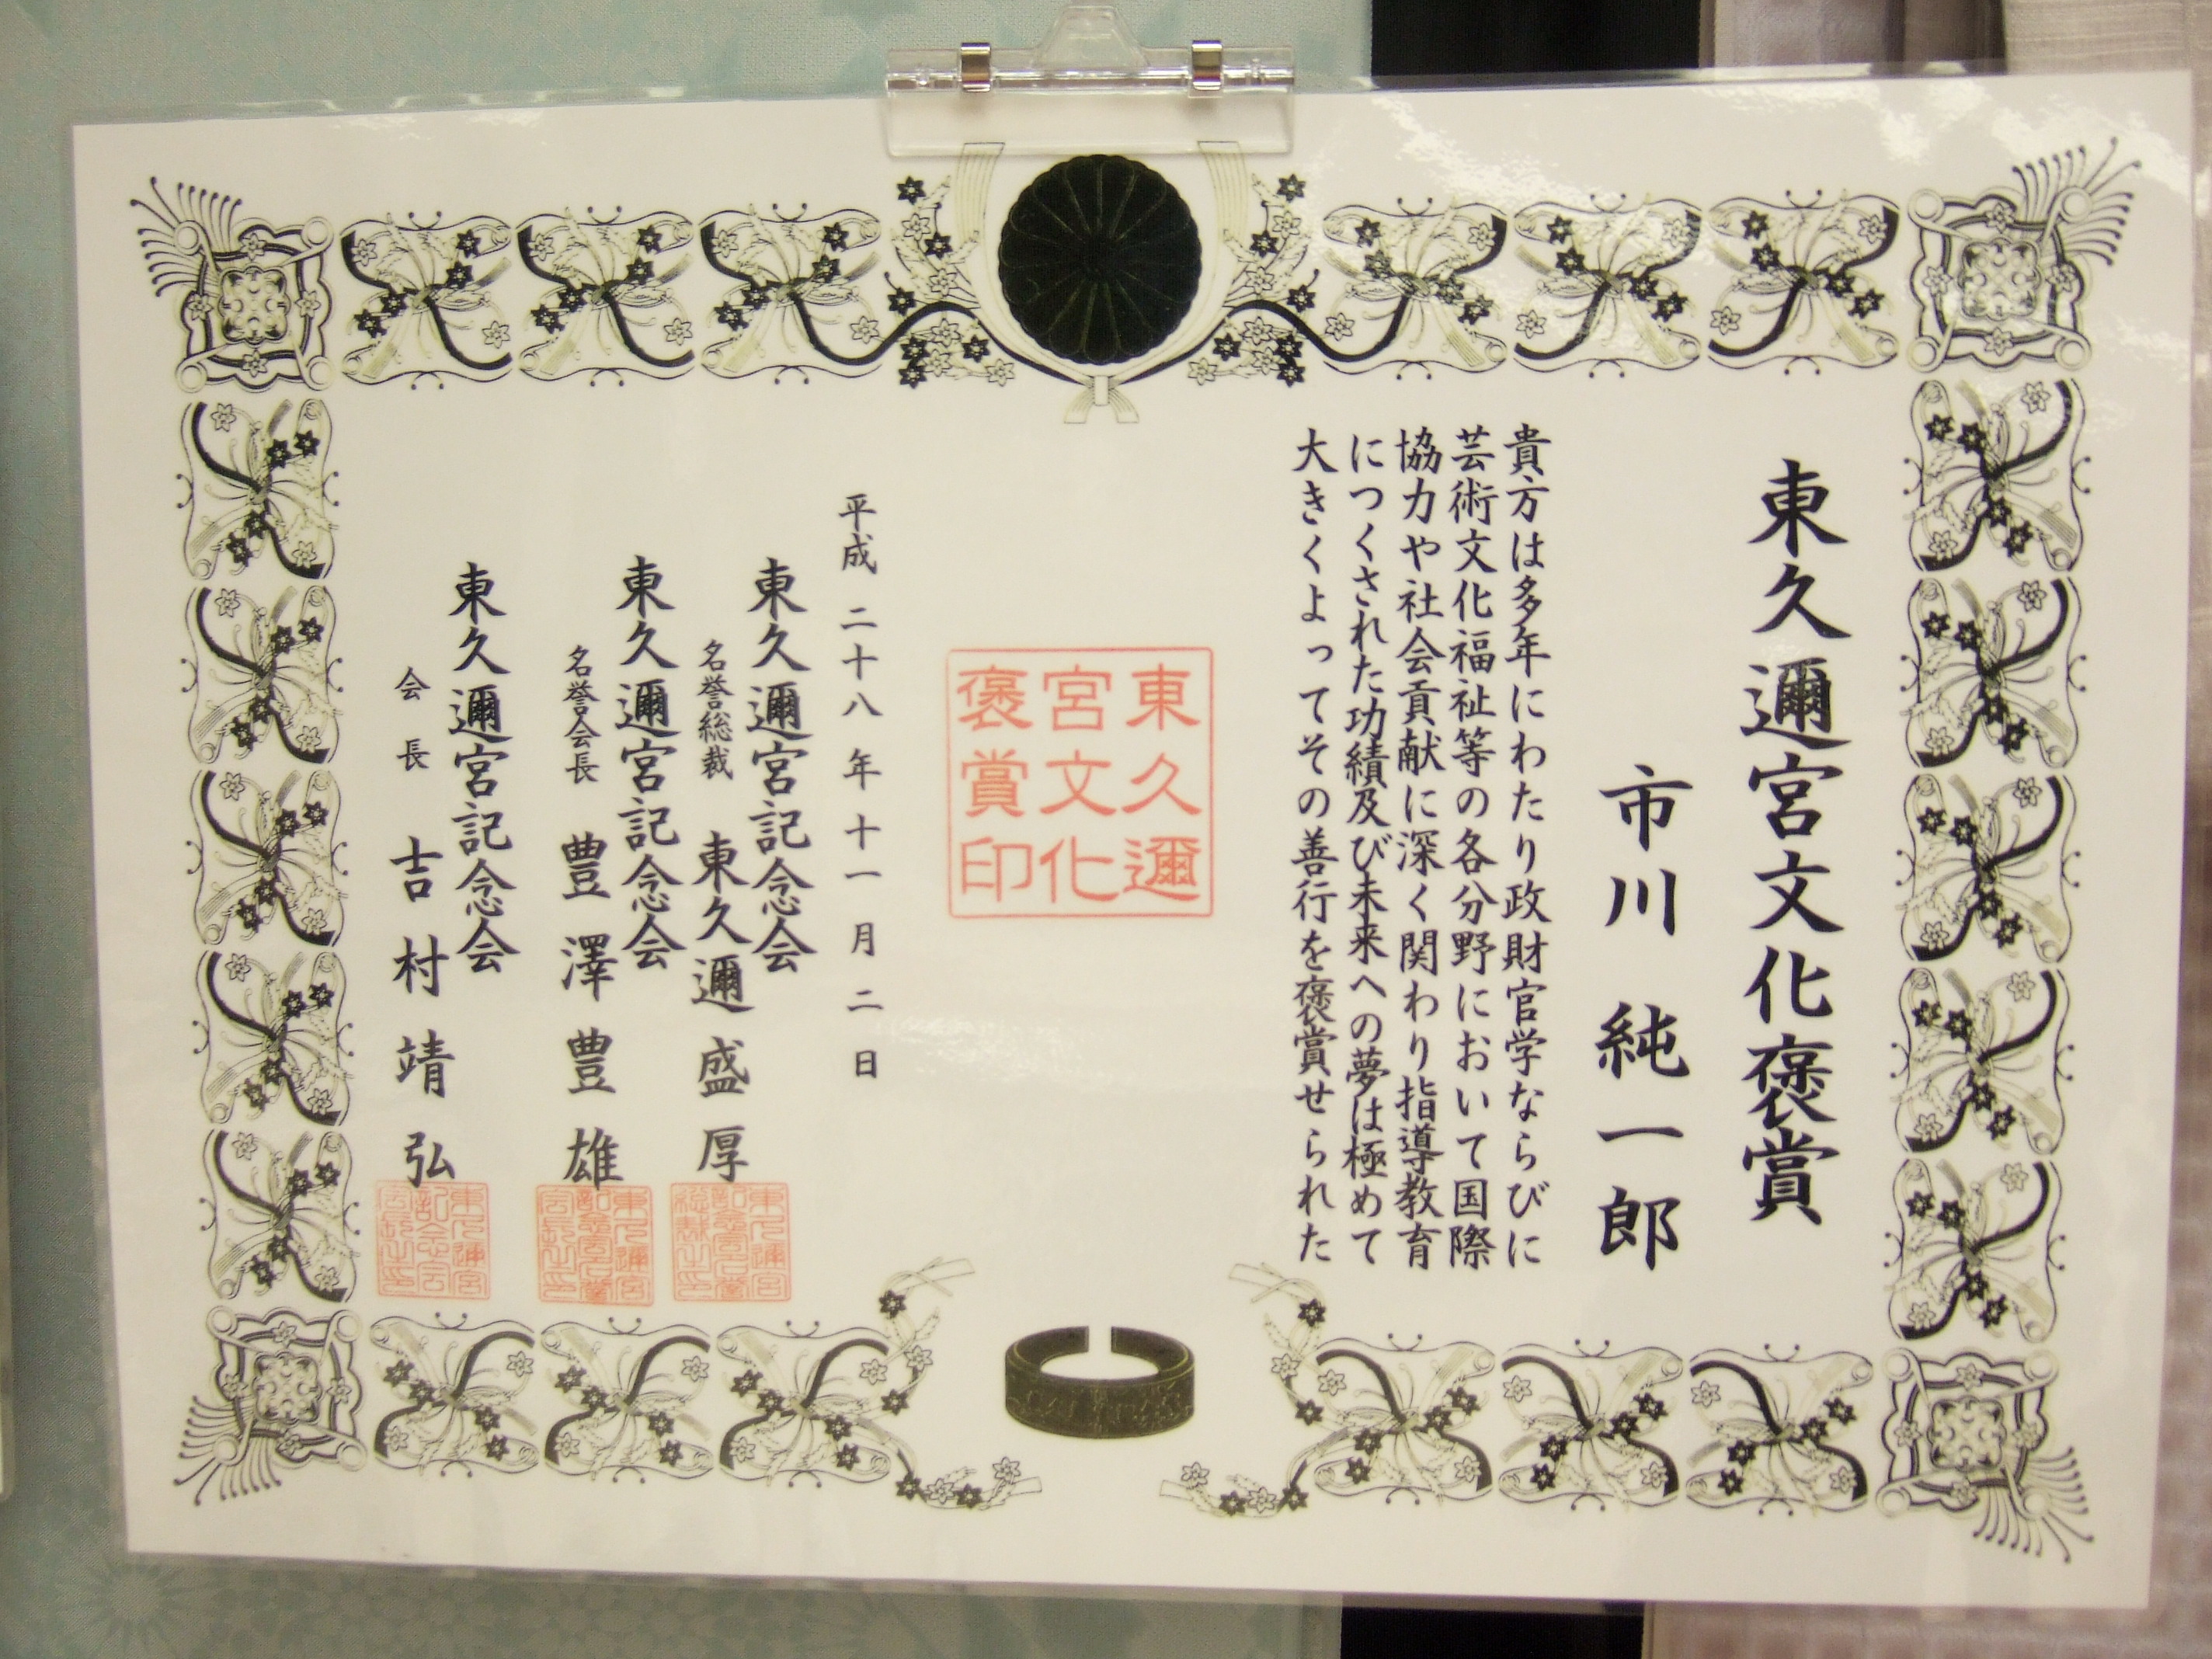 東久邇宮文化褒賞
市川 純一郎
貴方は多年にわたり政財官学ならびに
芸術文化福祉等の各分野において国際
協力や社会貢献に深く関わり指導教育
につくされた功績及び未来への夢は極めて
大きくよってその善行を褒賞せられた
東久邇
宮文化
褒賞印
平成 二十八年十一月二日
東久邇宮記念会
名誉総裁 東久邇 盛厚
東久邇宮記念会
名誉会長 豊澤豊雄
東久邇宮記念会
会長 吉村靖弘